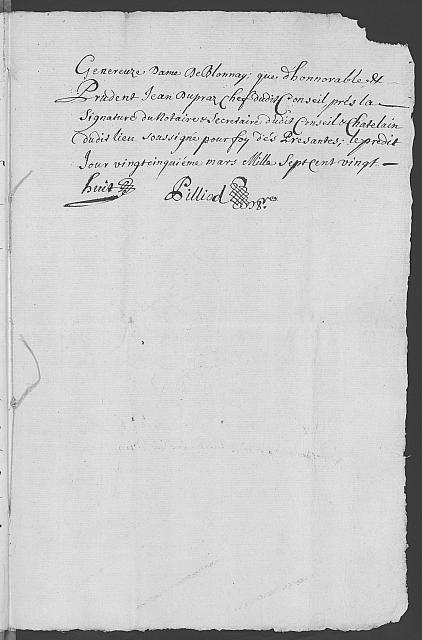 Genereuze Dame De Blonnay; que d'honnorable et
Prudent Jean Dupraz Chef dudit Conseil, prés la
Signature du Notaire et Secretaire dudit Conseil et Chatelain
dudit lieu soussigné pour foy dés Presantes; le predit
Jour vingtcinquiéme mars Mille Sept Cent vingt
huit
Pilliod